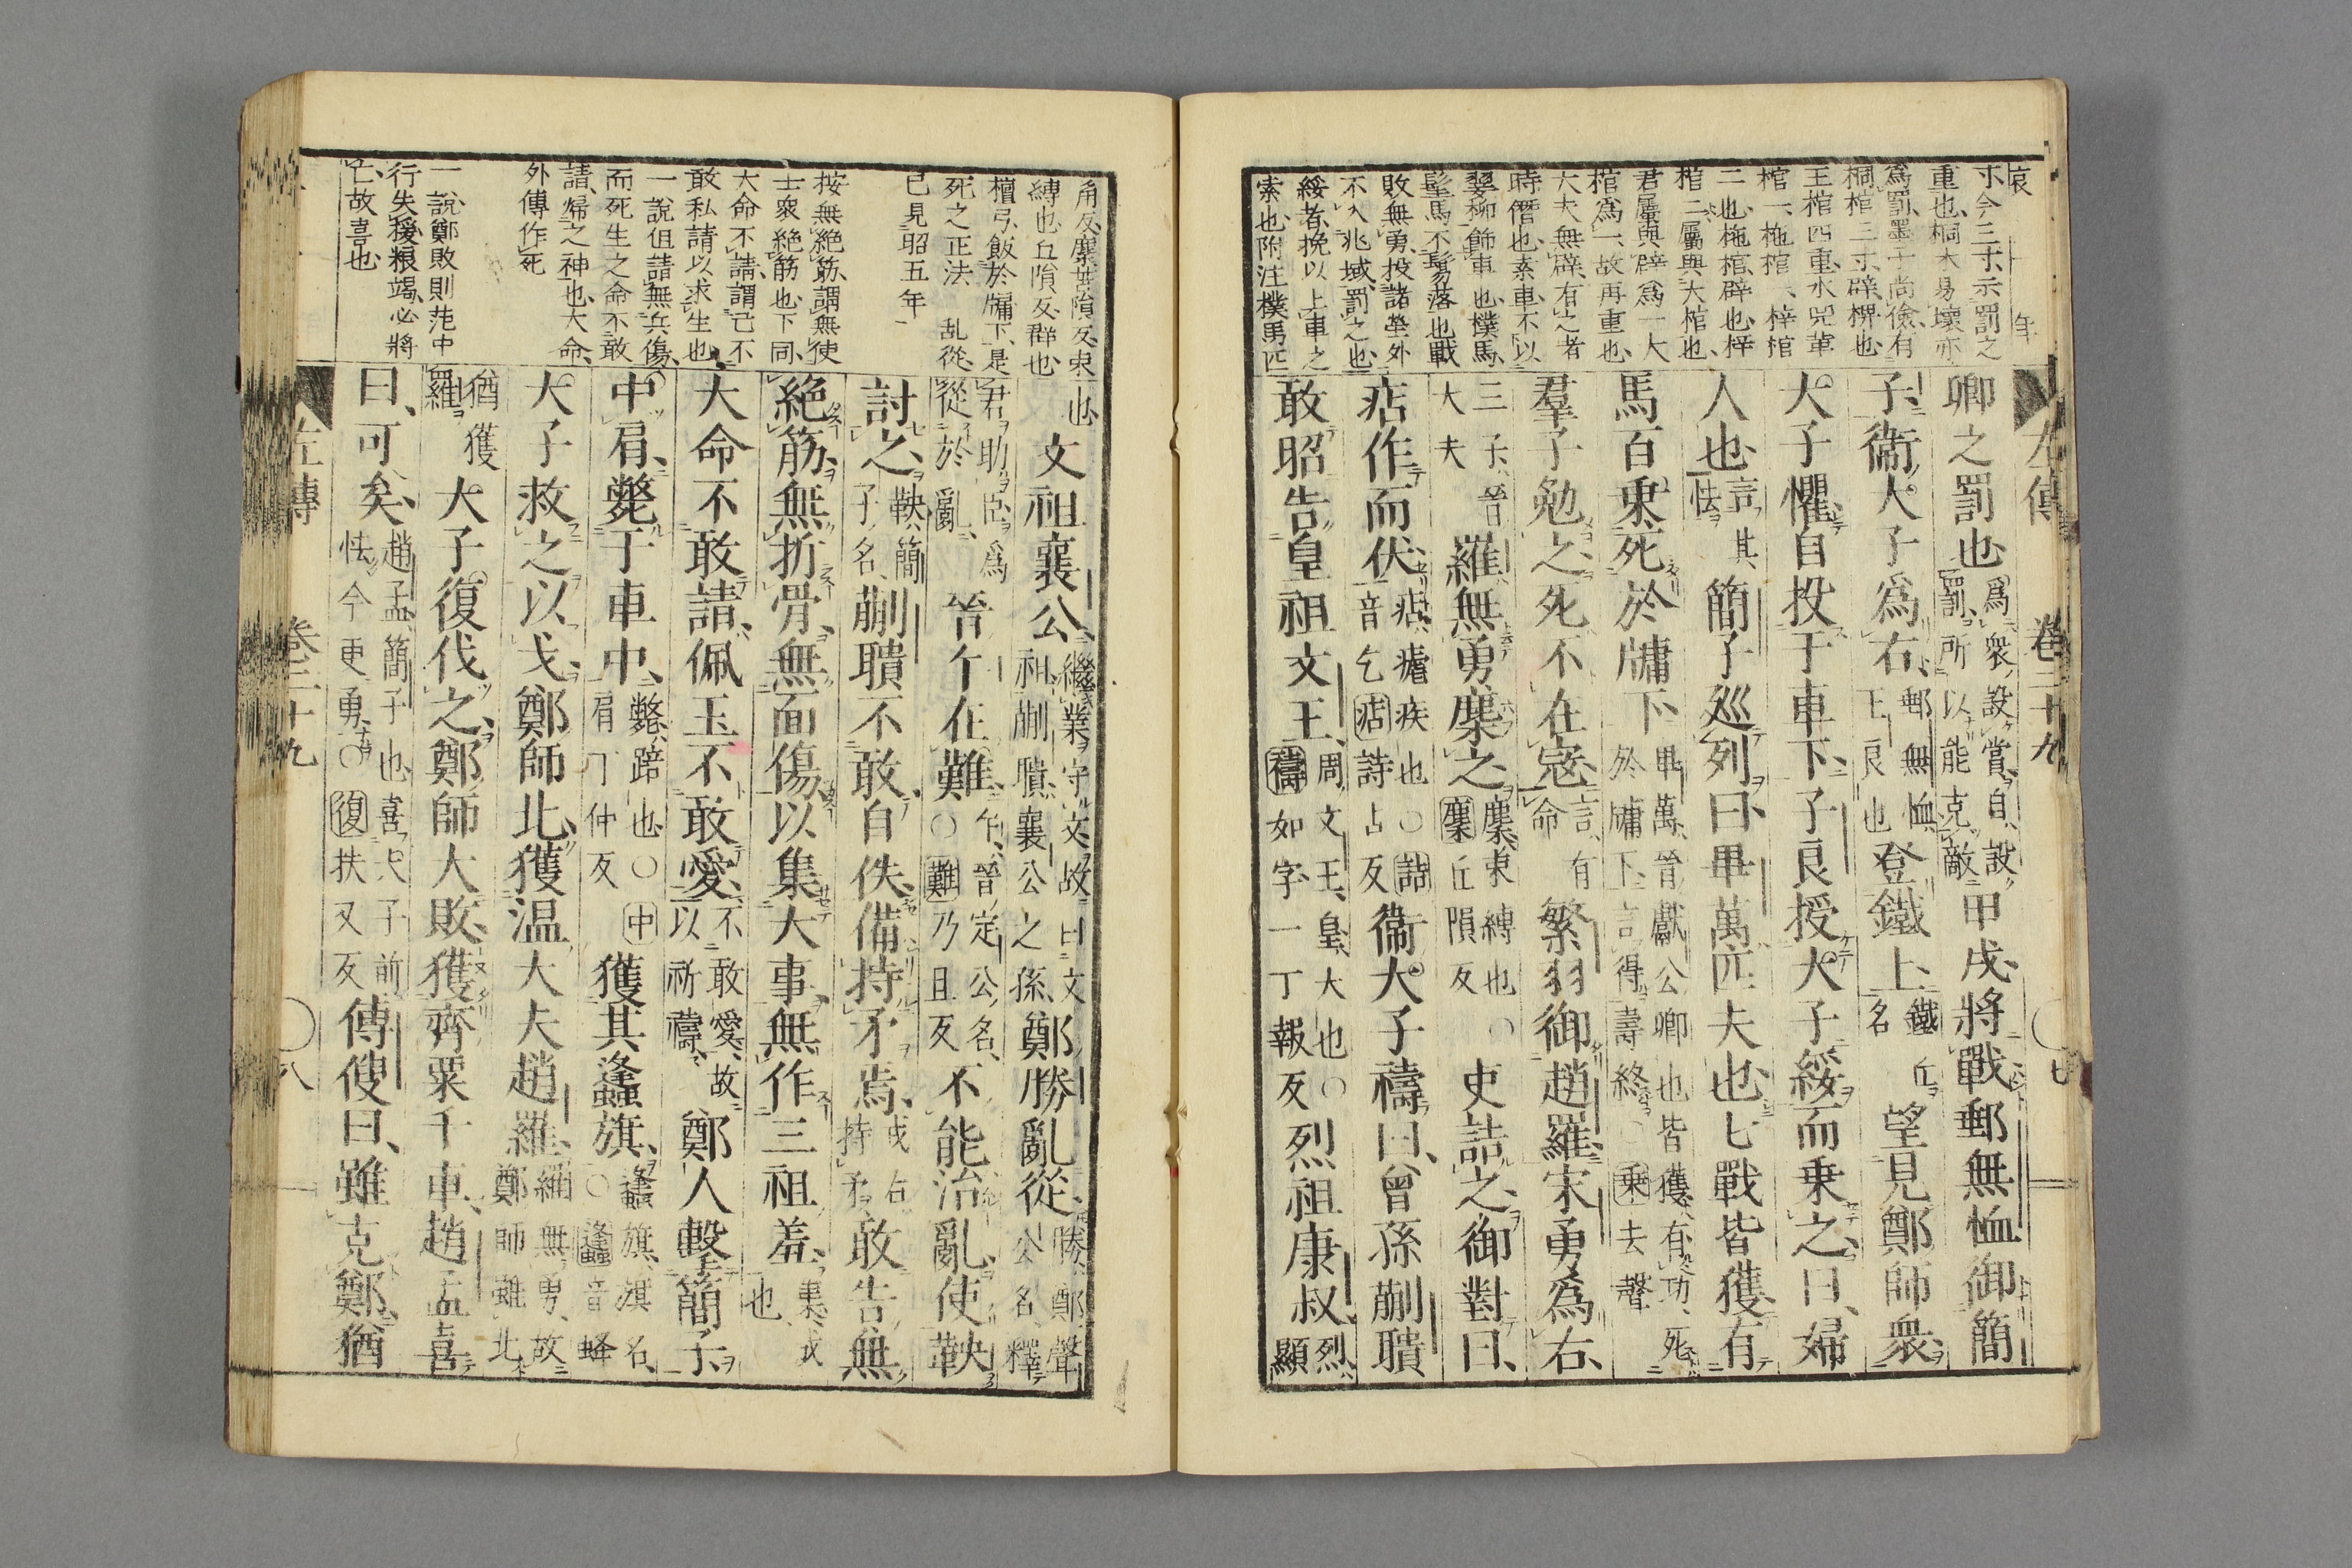 哀
年
寸今三寸示罰之
重也桐木易壞亦
爲罰墨子尚儉有
桐棺三寸辟椑也
王棺四重水兕革
棺一杝棺一梓棺
二也杝棺辟也梓
棺二屬與大棺也
君屬與辟爲一大
棺爲一故再重也
大夫無辟有之者
時僭也素車不以
翣柳飾車也樸馬
髦馬不鬄落也戰
敗無勇投諸塋外
不入兆域罰之也
綏者挽以上車之
索也附注樸馬匹
左傳 卷二十九 〇七
卿之罰也爲衆設賞自設罰所以能克敵甲戌將戰郵無恤御簡
子衞大子爲右郵無恤王良也登鐵上鐵丘名望見鄭師衆
大子懼自投于車下子良授大子綏而乗之曰婦
人也言其怯簡子巡列曰畢萬匹夫也七戰皆獲有
馬百乗死於牖下畢萬晉獻公卿也皆獲有功死於牖下言得壽終〇乗去聲
羣子勉之死不在寇言有命繁羽御趙羅宋勇爲右
三子晉大夫羅無勇麇之麇束縛也〇麇丘隕反吏詰之御對曰
痁作而伏痁瘧疾也〇詰音乞痁詩占反衞大子禱曰曾孫蒯聵
敢昭告皇祖文王周文王皇大也〇禱如字一丁報反烈祖康叔烈顯
角反麇其隕反束
縛也丘隕反群也
檀弓飯於牖下是
死之正法 乱從
已見昭五年
按無絶筋謂無使
士衆絶筋也下同
大命不請謂己不
敢私請以求生也
一說但請無兵傷
而死生之命不敢
請歸之神也大命
外傳作死
一說鄭敗則范中
行失援粮竭必將
亡故喜也
也文祖襄公繼業守文故曰文祖蒯聵襄公之孫鄭勝亂從勝鄭聲公名釋
君助臣爲從於亂晉午在難午晉定公名〇難乃且反不能治亂使鞅
討之鞅簡子名蒯聵不敢自佚備持矛焉戎右持矛敢告無
絶筋無折骨無面傷以集大事無作三祖羞集成也
大命不敢請佩玉不敢愛不敢愛故以祈禱鄭人擊簡子
中肩斃于車中斃踣也〇中肩丁仲反獲其逢蠭旗蠭旗旗名〇蠭音蜂
大子救之以戈鄭師北獲温大夫趙羅羅無勇故鄭師雖北
猶獲羅大子復伐之鄭師大敗獲齊粟千車趙孟喜
曰可矣趙孟簡子也喜大子前怯今更勇〇復扶又反傅傁曰雖克鄭猶
左傳 卷二十九 〇八